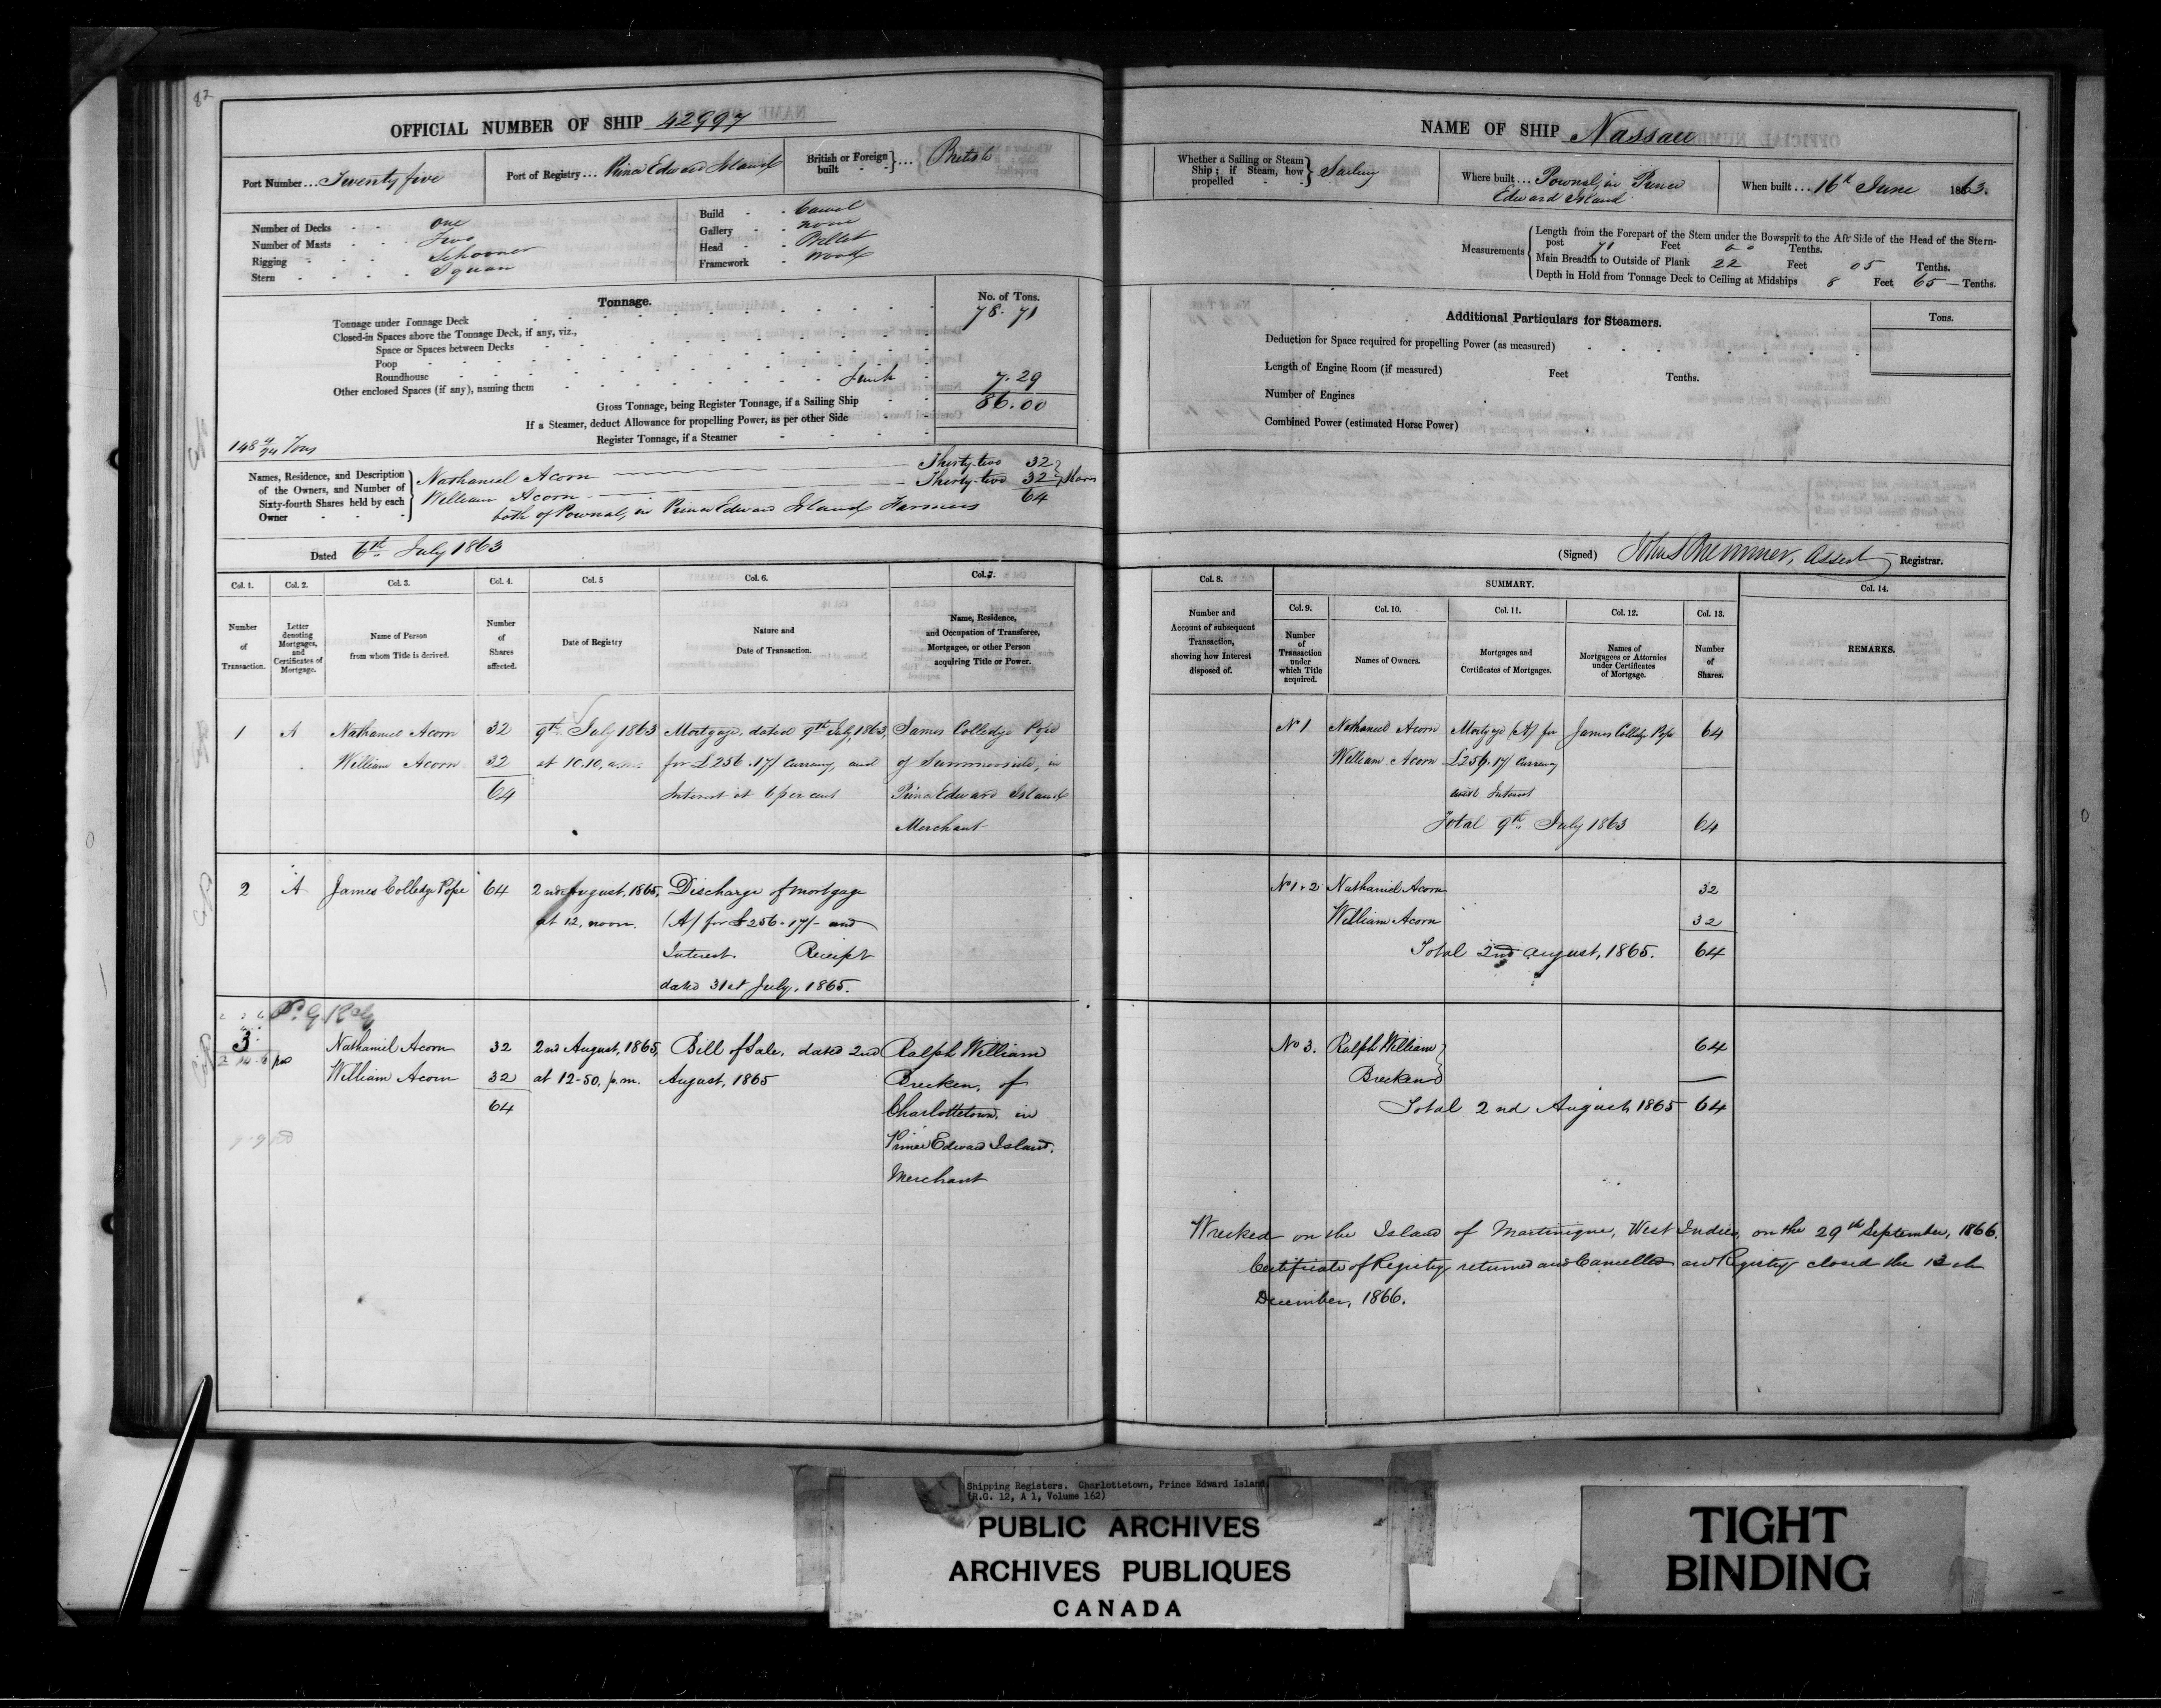 82
OFFICIAL NUMBER OF SHIP 42997
Port Number ... Twenty five
Port of Registry ... Prince Edward Island
British or Foreign built } ... British
Number of Decks - - One
Number of Masts - - Two
Rigging - - - Schooner
Stern - - - - Square
Build - - Carvel
Gallery - - none
Head - - Billet
Framework - Wood
Tonnage.
No. of Tons.
Tonnage under Tonnage Deck 78. 71
Closed-in Spaces above the Tonnage Deck, if any, viz.,
Space or Spaces between Decks
Poop
Roundhouse
Other enclosed Spaces (if any), naming them 7. 29
Gross Tonnage, being Register Tonnage, if a Sailing Ship 86. 00
If a Steamer, deduct Allowance for propelling Power, as per other Side
Register Tonnage, if a Steamer
Names, Residence, and Description of the Owners, and Number of Sixty-fourth Shares held by each Owner
Nathaniel Acorn Thirty-two 32
William Acorn Thirty-two 32 } Shares
64
both of Pownal, in Prince Edward Island Farmers
Dated 6th July 1863
Col. 1. Col. 2. Col. 3. Col. 4. Col. 5 Col. 6. Col. 7.
Number of Transaction.
Letter denoting Mortgages, and Certificates of Mortgage.
Name of Person from whom Title is derived.
Number of Shares affected.
Date of Registry
Nature and Date of Transaction.
Name, Residence, and Occupation of Transferee, Mortgagee, or other Person acquiring Title or Power.
1 A Nathaniel Acorn 32 9th July 1863 Mortgage, dated 9th July, 1863, James Colledge Pope
William Acorn 32 at 10.10, a.m. for £256.17/ Currency, and of Summerside, in
64 Interest at 6 per cent Prince Edward Island
Merchant
2 A James Colledge Pope 64 2nd August, 1865, Discharge of mortgage
at 12, noon. (A) for £256-17/- and
Interest. Receipt
dated 31st July, 1865.
3 Nathaniel Acorn 32 2nd August, 1865, Bill of Sale, dated 2nd Ralph William
William Acorn 32 at 12-50, p.m. August, 1865 Brecken, of
64 Charlottetown, in
Prince Edward Island.
Merchant
NAME OF SHIP Nassau
Whether a Sailing or Steam Ship; if Steam, how propelled } Sailing
Where built ... Pownal, in Prince
Edward Island
When built ... 16th June 1863.
Measurements
Length from the Forepart of the Stem under the Bowsprit to the Aft Side of the Head of the Stern-
post 71 Feet Tenths.
Main Breadth to Outside of Plank 22 Feet 05 Tenths.
Depth in Hold from Tonnage Deck to Ceiling at Midships 8 Feet 65 Tenths.
Additional Particulars for Steamers.
Tons.
Deduction for Space required for propelling Power (as measured)
Length of Engine Room (if measured) Feet Tenths.
Number of Engines
Combined Power (estimated Horse Power)
(Signed) Registrar.
Col. 8. SUMMARY. Col. 14.
Col. 9. Col. 10. Col. 11. Col. 12. Col. 13.
Number and Account of subsequent Transaction, showing how Interest disposed of.
Number of Transaction under which Title acquired.
Names of Owners.
Mortgages and Certificates of Mortgages.
Names of Mortgagees or Attornies under Certificates of Mortgage.
Number of Shares.
REMARKS.
No 1 Nathaniel Acorn Mortgage (A) for James Colledge Pope 64
William Acorn £256.17/ Currency
and Interest
Total 9th July 1863 64
No 1 & 2 Nathaniel Acorn 32
William Acorn 32
Total 2nd August, 1865. 64
No 3. Ralph William 64
Brecken
Total 2nd August 1865 64
Wrecked on the Island of Martinique, West Indies, on the 29th September, 1866.
Certificate of Registry returned and Cancelled and Registry closed the 12th
December, 1866.
Shipping Registers. Charlottetown, Prince Edward Island
(R.G. 12, A 1, Volume 162)
PUBLIC ARCHIVES
ARCHIVES PUBLIQUES
CANADA
TIGHT
BINDING